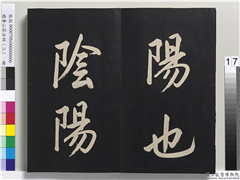 陽也
陰陽
17